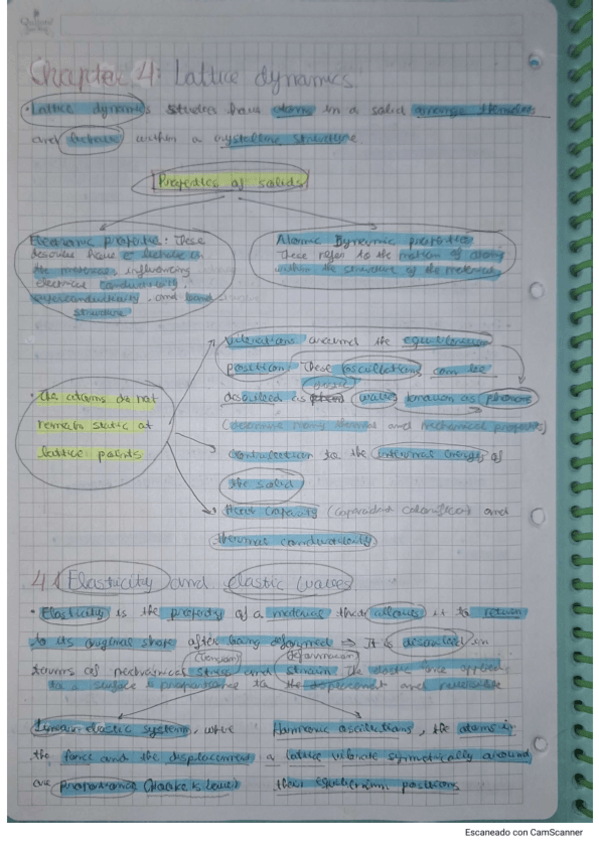 Chapter 4: Lattice dynamics
· Lattice dynamics studies how atoms in a solid arrange themselves
and behave within a crystalline structure
Properties of solids
Electronic properties: These
describe how e⁻ behave in
the material, influencing
electrical conductivity,
superconductivity, and band
structure
Atomic Dynamic properties
These refer to the motion of atoms
within the structure of the material
· The atoms do not
remain static at
lattice points
Vibrations around the equilibrium
position. These oscillations can be
described as waves known as phonons
(determine many thermal and mechanical properties)
contribution to the internal energy of
the solid
Heat capacity (capacidad calorífica) and
thermal conductivity
4.1 Elasticity and elastic waves
· Elasticity is the property of a material that allows it to return
to its original shape after being deformed ⇒ It is described in
(Tension) (deformacion)
terms of mechanical stress and strain. The elastic force applied
to a surface is proportional to the displacement and reversible
Linear elastic systems, where
the force and the displacement
are proportional (Hooke's Law)
Harmonic oscillations, the atoms in
a lattice vibrate symmetrically around
their equilibrium positions
Escaneado con CamScanner